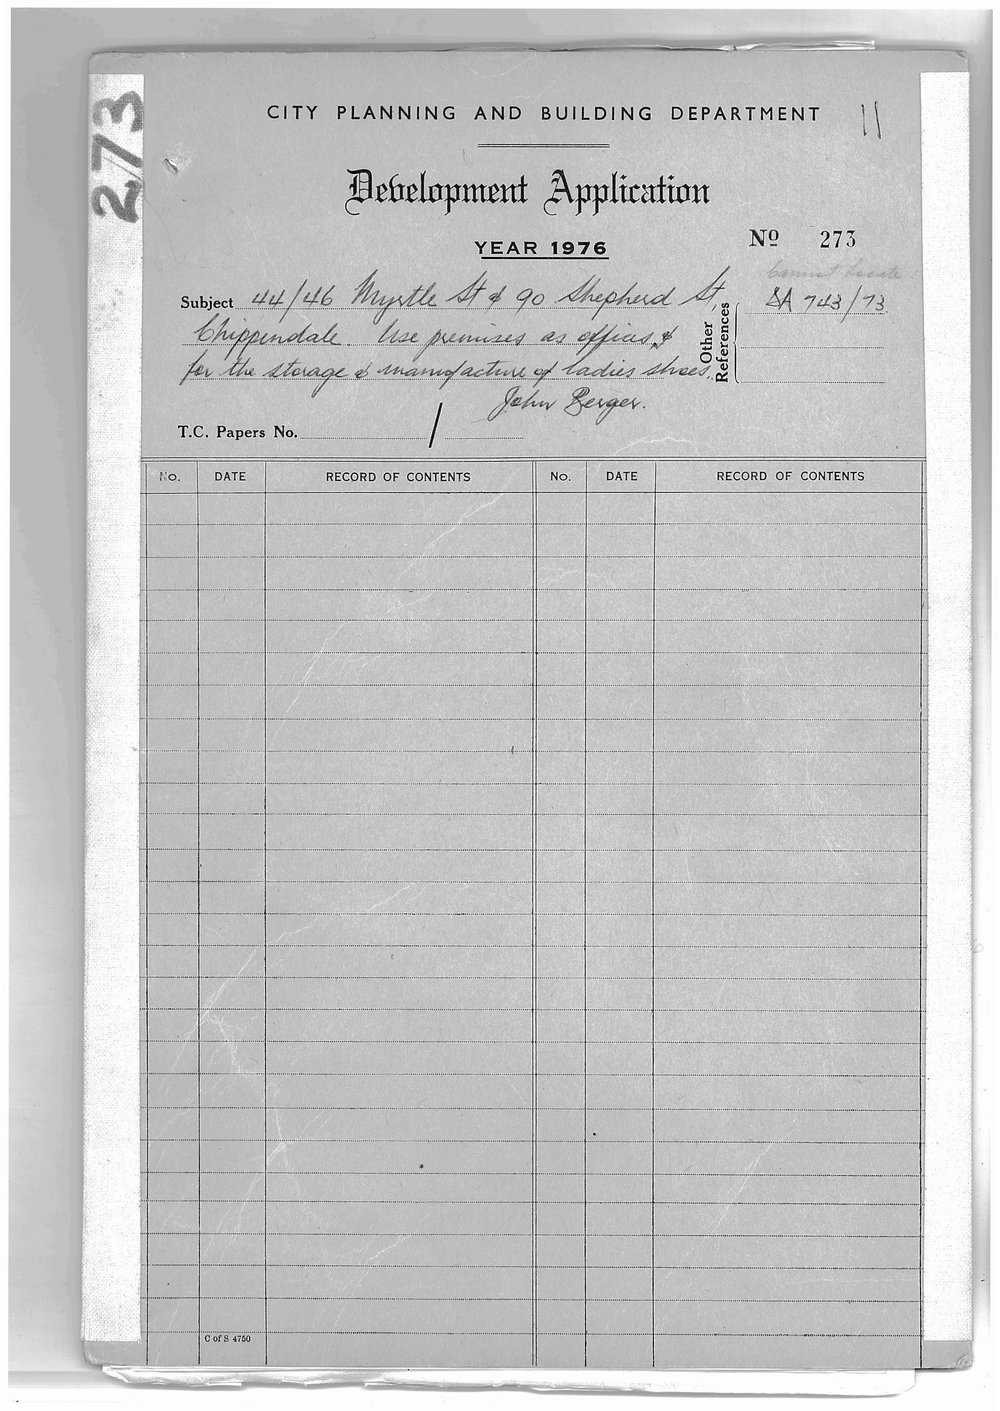 273
CITY PLANNING AND BUILDING DEPARTMENT
11
Development Application
YEAR 1976
No 273
Cannot locate
Subject 44/46 Myrtle St & 90 Shepherd St,
Chippendale. Use premises as offices &
for the storage & manufacture of ladies shoes.
John Berger.
Other References
DA 743/73
T.C. Papers No. /
No. DATE RECORD OF CONTENTS No. DATE RECORD OF CONTENTS
C of S 4750